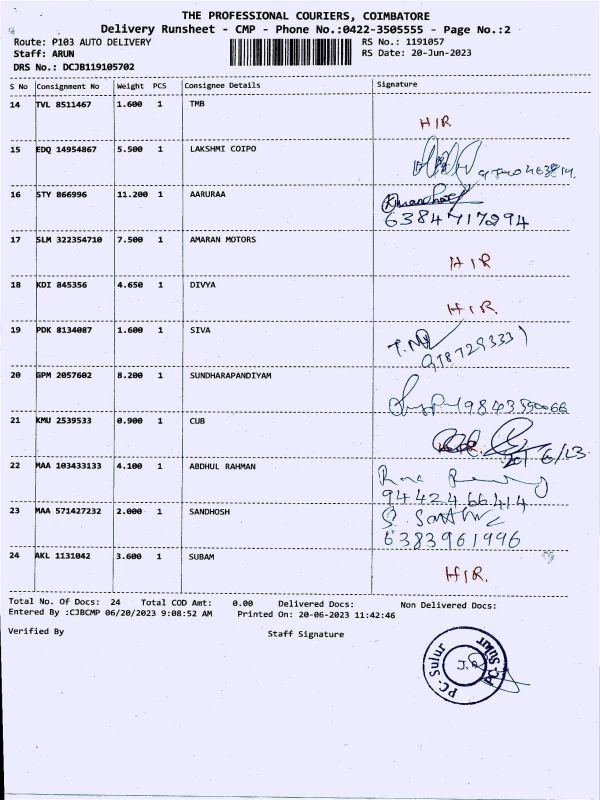 THE PROFESSIONAL COURIERS, COIMBATORE
Delivery Runsheet - CMP - Phone No.:0422-3505555 - Page No.:2
Route: P103 AUTO DELIVERY RS No.: 1191057
Staff: ARUN RS Date: 20-Jun-2023
DRS No.: DCJB119105702
S No Consignment No Weight PCS Consignee Details Signature
14 TVL 8511467 1.600 1 TMB
HIR
15 EDQ 14954867 5.500 1 LAKSHMI COIPO
16 STY 866996 11.200 1 AARURAA
6384717294
17 SLM 322354710 7.500 1 AMARAN MOTORS
HIR
18 KDI 845356 4.650 1 DIVYA
HIR
19 PDK 8134087 1.600 1 SIVA
20 GPM 2057602 8.200 1 SUNDHARAPANDIYAM
21 KMU 2539533 0.900 1 CUB
22 MAA 103433133 4.100 1 ABDHUL RAHMAN
9442466414
23 MAA 571427232 2.000 1 SANDHOSH
6383961996
24 AKL 1131042 3.600 1 SUBAM
HIR.
Total No. Of Docs: 24 Total COD Amt: 0.00 Delivered Docs: Non Delivered Docs:
Entered By :CJBCMP 06/20/2023 9:08:52 AM Printed On: 20-06-2023 11:42:46
Verified By Staff Signature
PC- Sulur